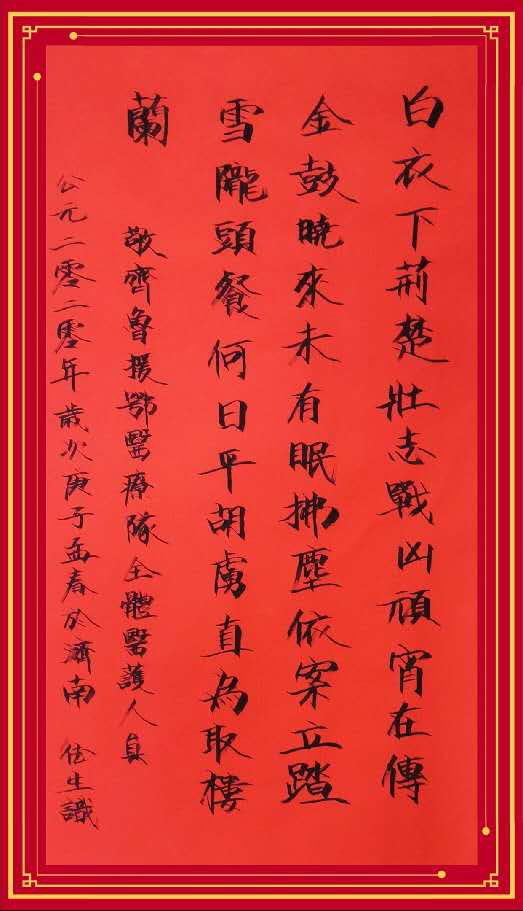 白衣下荊楚壯志戰凶頑宵在傳
金鼓曉來未有眠拂塵依案立踏
雪隴頭餐何日平胡虜直為取樓
蘭
敬齊魯援鄂醫療隊全體醫護人員
公元二零二零年歲次庚子孟春於濟南 生識